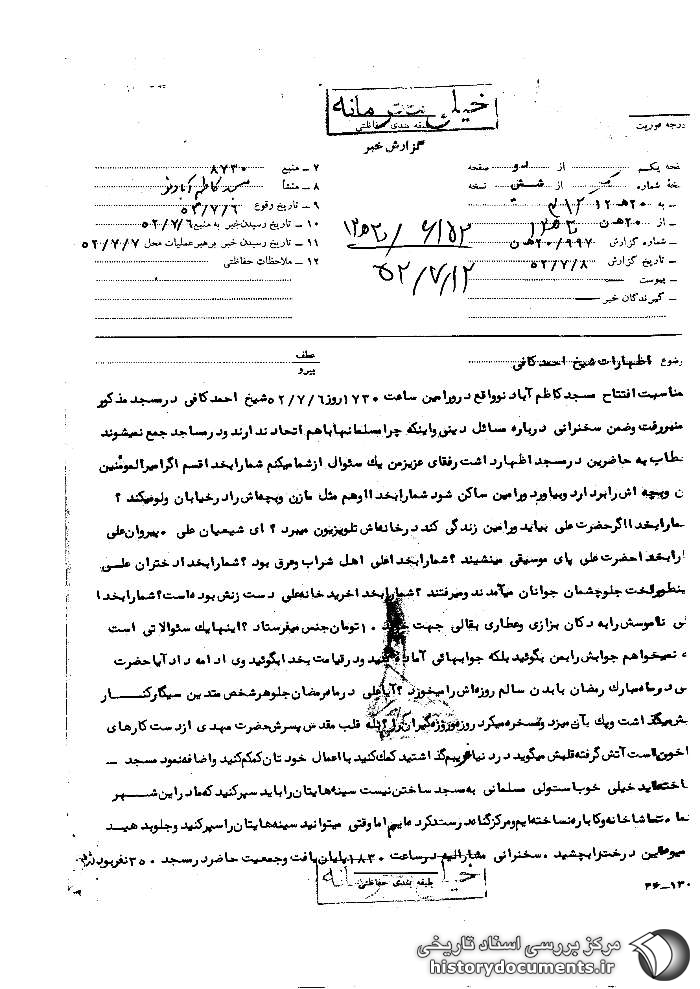 خیلی محرمانه
طبقه بندی حفاظتی
درجه فوریت
گزارش خبر
صفحه یکم از دو صفحه
نسخه شماره از شش نسخه
۷ ـ منبع ۸۷۳۰
۸ ـ منشأ
۹ ـ تاریخ وقوع ۵۲/۷/۶
۱۰ ـ تاریخ رسیدن خبر به منبع ۵۲/۷/۶
۱۱ ـ تاریخ رسیدن خبر برهبر عملیات محل ۵۲/۷/۷
۱۲ ـ ملاحظات حفاظتی
ـ به ۲۰هـ۱۲ ۳۱۲
ـ از ۲۰هـ ن
ـ شماره گزارش ۲۰/۹۹۷هـ ن
ـ تاریخ گزارش ۵۲/۷/۸
ـ پیوست
ـ گیرندگان خبر
۵۲/۷/۱۲
موضوع اظهارات شیخ احمد کافی
عطف
پیرو
مناسبت افتتاح مسجد کاظم آباد نوواقع در ورامین ساعت ۱۷۳۰ روز ۵۲/۷/۶ شیخ احمد کافی در مسجد مذکور
منبر رفت وضمن سخنرانی درباره مسائل دینی واینکه چرا مسلمانها باهم اتحاد ندارند ودر مساجد جمع نمیشوند
خطاب به حاضرین در مسجد اظهار داشت رفقای عزیز من یك سئوال از شما میکنم شما را بخدا قسم اگر امیرالمومنین
زن وبچه اش را بردارد وبیاورد ورامین ساکن شود شما را بخدا او هم مثل ما زن وبچه اش را در خیابان ول میکند ؟
شما را بخدا اگر حضرت علی بیاید ورامین زندگی کند در خانه اش تلویزیون میبرد ؟ ای شیعیان علی ۰ پیروان علی
شما را بخدا حضرت علی پای موسیقی مینشیند ؟ شما را بخدا علی اهل شراب وعرق بود ؟ شما را بخدا دختران علی
اینطور لخت جلو چشمان جوانان میآمدند ومیرفتند ؟ شما را بخدا خرید خانه علی دست زنش بوده است؟ شما را بخدا
علی ناموسش را به دکان بزازی وعطاری بقالی جهت ۱۰ تومان جنس میفرستاد ؟ اینها یك سئوالاتی است
که نمیخواهم جوابش را بمن بگوئید بلکه جوابهائی آماده کنید ودر قیامت بخدا بگوئید وی ادامه داد آیا حضرت
علی در ماه مبارك رمضان با بدن سالم روزه اش را میخورد ؟ آیا علی در ماه رمضان جلو هر شخص متدین سیگار کنار
لبش میگذاشت ویك بآن میزد وتمسخره میکرد روزه وروزه گیران را ؟ بله قلب مقدس پسرش حضرت مهدی از دست کارهای
ما خون است آتش گرفته قلبش میگوید در دنیا غریبم گذاشتید کمك کنید با اعمال خودتان کمکم کنید واضافه نمود مسجد ـ
ساخته اید خیلی خوب است ولی مسلمانی به مسجد ساختن نیست سینه هایتان را باید سپر کنید که ما در این شهر
سینما ۰ تماشاخانه وکاباره نساخته ایم ومرکز گناه درست نکرده ایم اما وقتی میتوانید سینه هایتان را سپر کنید وجلو بدهید
میوه این درخت را بچشید ۰ سخنرانی مشارالیه در ساعت ۱۸۳۰ پایان یافت وجمعیت حاضر در مسجد ۳۵۰ نفر بود
خیلی محرمانه
طبقه بندی حفاظتی
۳۶ــ۱۳۰
مرکز بررسی اسناد تاریخی
historydocuments.ir